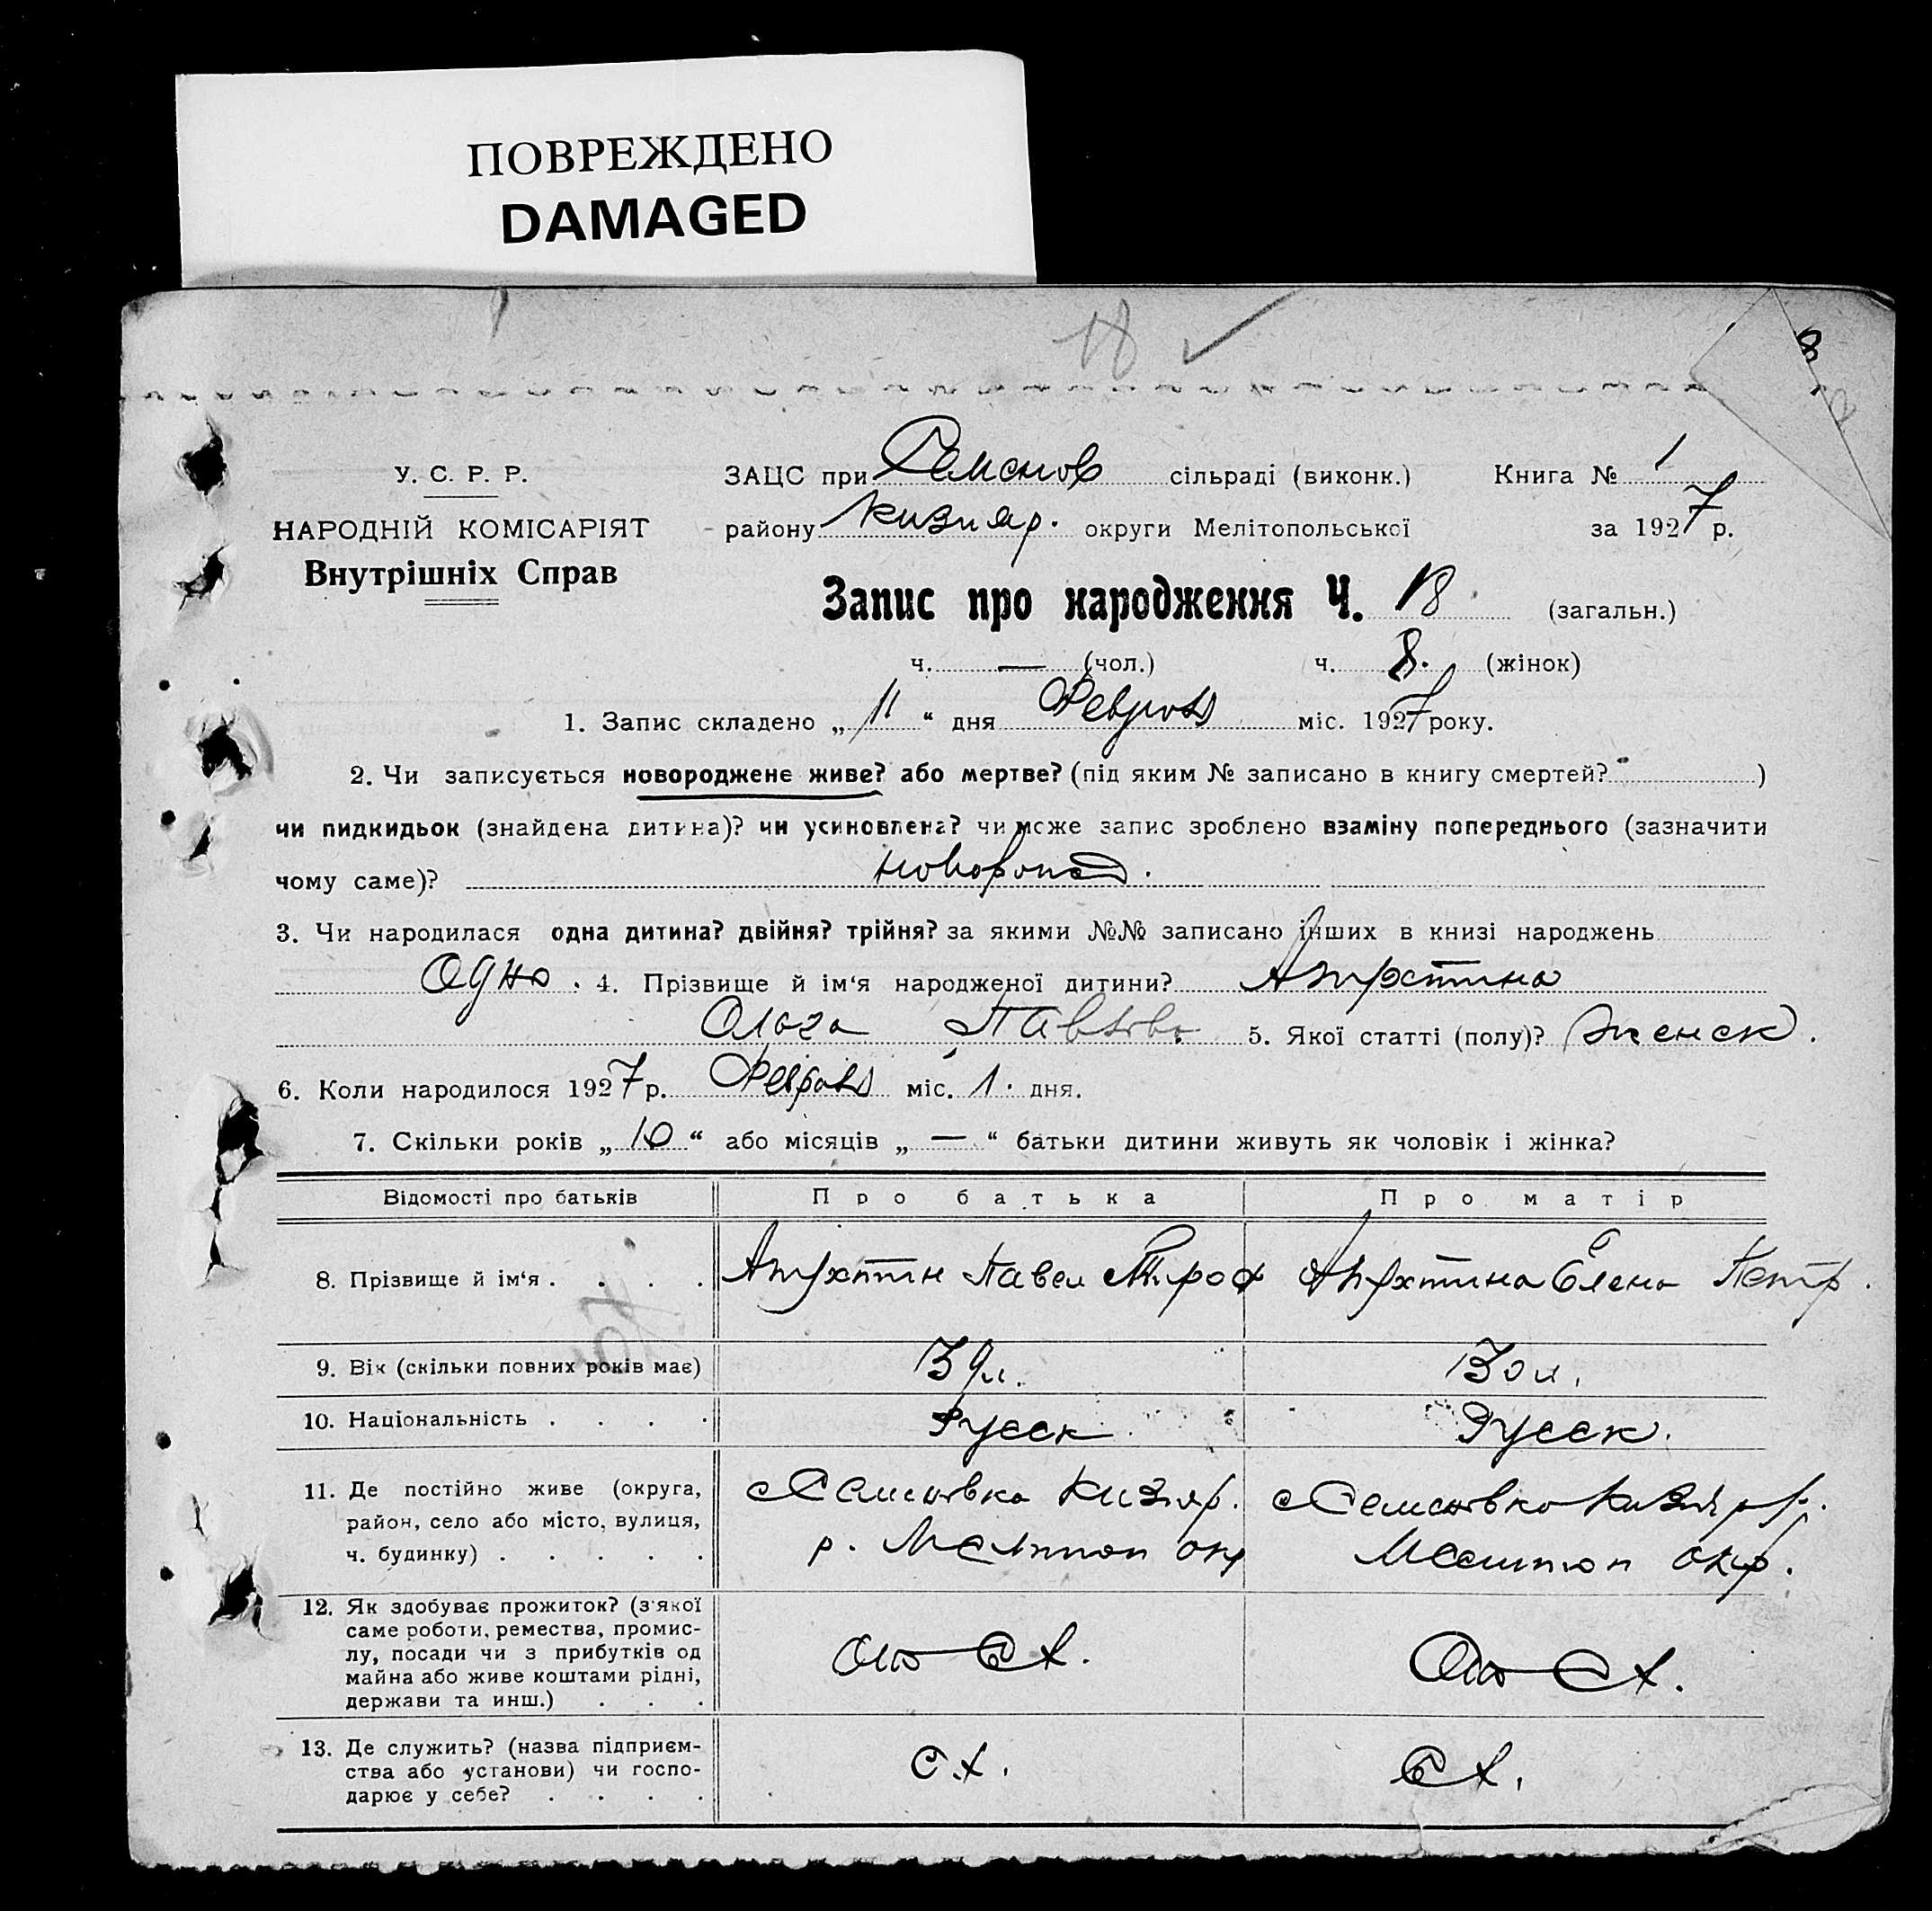 ПОВРЕЖДЕНО
DAMAGED
18
У. С. Р. Р.
НАРОДНІЙ КОМІСАРІЯТ
Внутрішніх Справ
ЗАЦС при Семенов сільраді (виконк.) Книга № 1
району Кизияр. округи Мелітопольської за 1927 р.
Запис про народження Ч. 18 (загальн.)
ч. — (чол.) ч. 8. (жінок)
1. Запис складено „ 11 “ дня Февраля міс. 1927 року.
2. Чи записується новороджене живе? або мертве? (під яким № записано в книгу смертей? )
чи пидкидьок (знайдена дитина)? чи усиновлена? чи може запис зроблено взаміну попереднього (зазначити
чому саме)?
3. Чи народилася одна дитина? двійня? трійня? за якими №№ записано інших в книзі народжень
Одно. 4. Прізвище й ім‘я народженої дитини? Апухтина
Ольга Павловн 5. Якої статті (полу)? Женск.
6. Коли народилося 1927 р. Февраля міс. 1. дня.
7. Скільки років „ 10 “ або місяців „ — “ батьки дитини живуть як чоловік і жінка?
Відомості про батьків Про батька Про матір
8. Прізвище й ім‘я . . . . Апухтин Павел Троф Апухтина Елена Петр.
9. Вік (скільки повних років має) 39 л. 30 л.
10. Національність . . . . Русск Русск.
11. Де постійно живе (округа, район, село або місто, вулиця, ч. будинку) . . . . .
с Семеновка Кизияр. р. Мелитоп окр
с Семеновка Кизияр р. Мелитоп окр.
12. Як здобуває прожиток? (з'якої
саме роботи, ремества, промис-
лу, посади чи з прибутків од
майна або живе коштами рідні,
держави та инш.) . . .
От СХ. От СХ.
13. Де служить? (назва підприєм-
ства або установи) чи госпо-
дарює у себе? . . . .
С.Х. СХ.